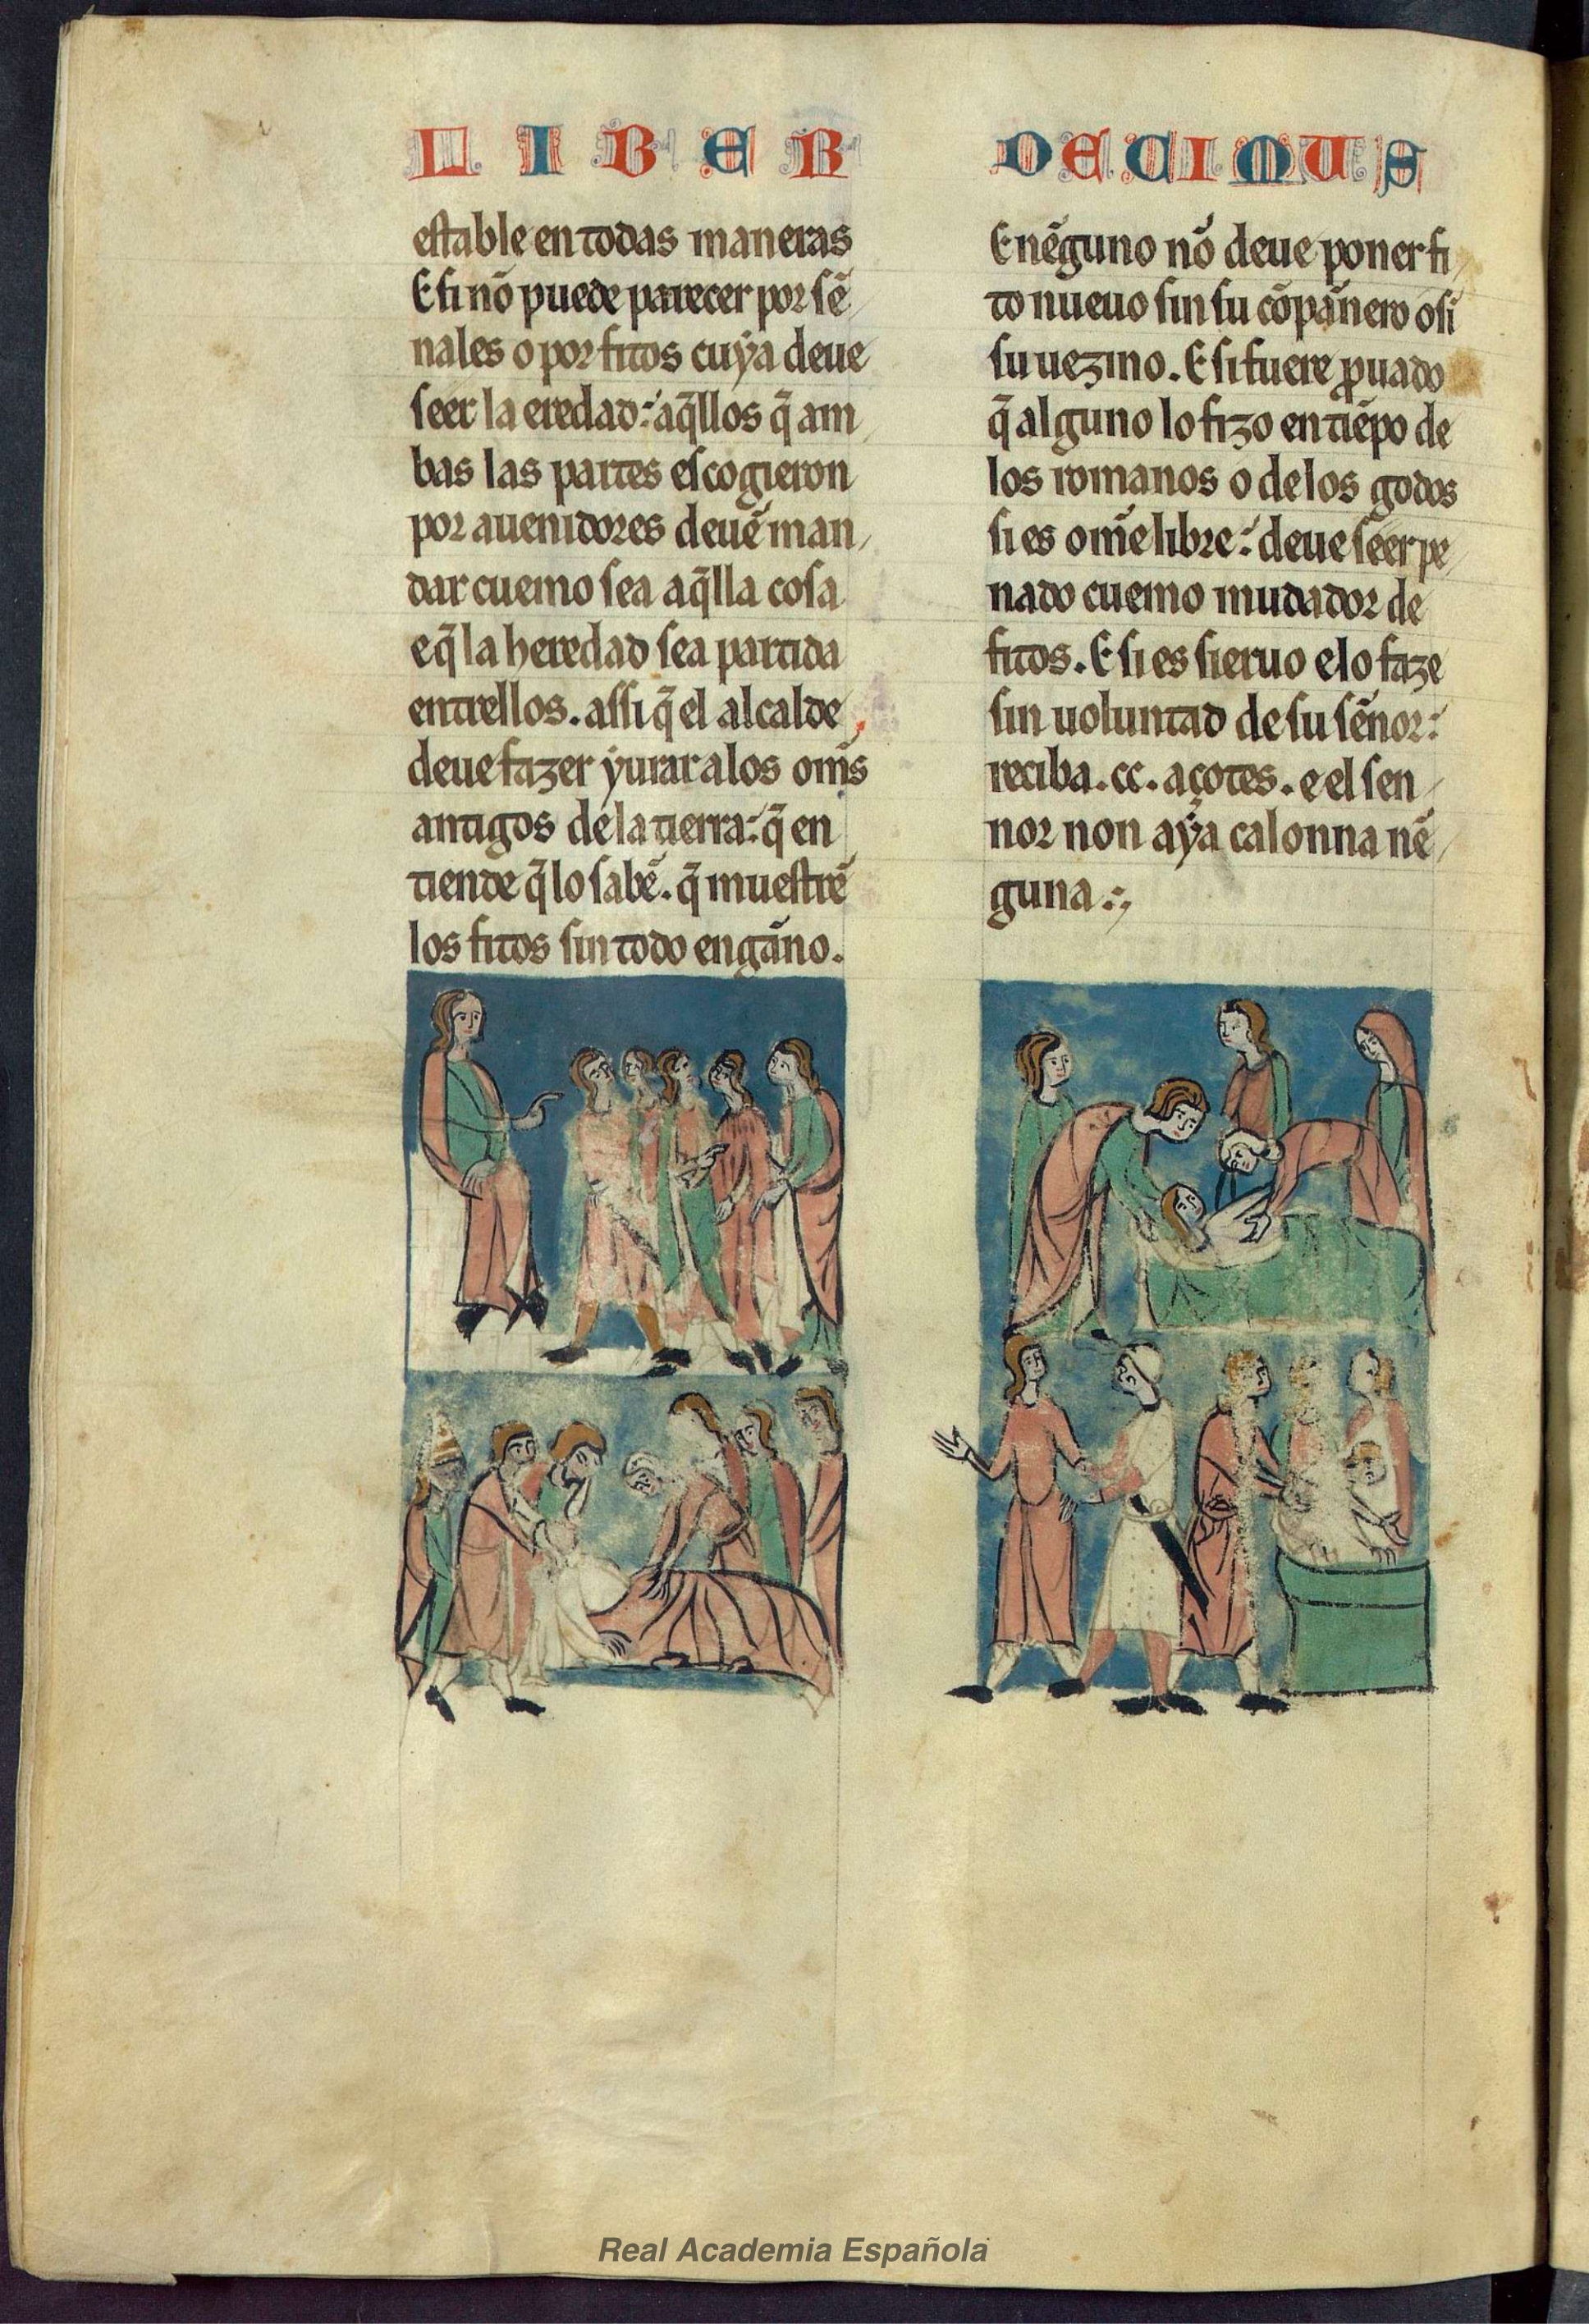 LIBER DECIMUS
estable en todas maneras
E si nõ puede parecer por sẽ
nales o por fitos cuẏa deue
seer la eredad: aq̃llos q̃ am
bas las partes escogieron
por auenidores deuẽ man
dar cuemo sea aq̃lla cosa
e q̃ la heredad sea partida
entrellos. assi q̃ el alcalde
deue fazer ẏurar alos om̃s
antigos dela tierra: q̃ en
tiende q̃ lo sabẽ. q̃ muestrẽ
los fitos sin todo engãno.
E nẽguno nõ deue poner fi
to nueuo sin su cõpãnero o si
su uezino. E si fuere ꝓuado
q̃ alguno lo fizo en tiẽpo de
los romanos o delos godos
si es om̃e libre: deue seer pe
nado cuemo mudador de
fitos. E si es sieruo e lo faze
sin uoluntad de su sẽnor:
reciba .cc. açotes. e el sen
nor non aẏa calonna nẽ
guna.
Real Academia Española